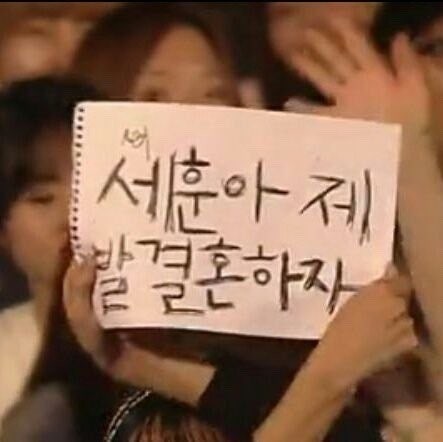 세훈아 제
발결혼하자